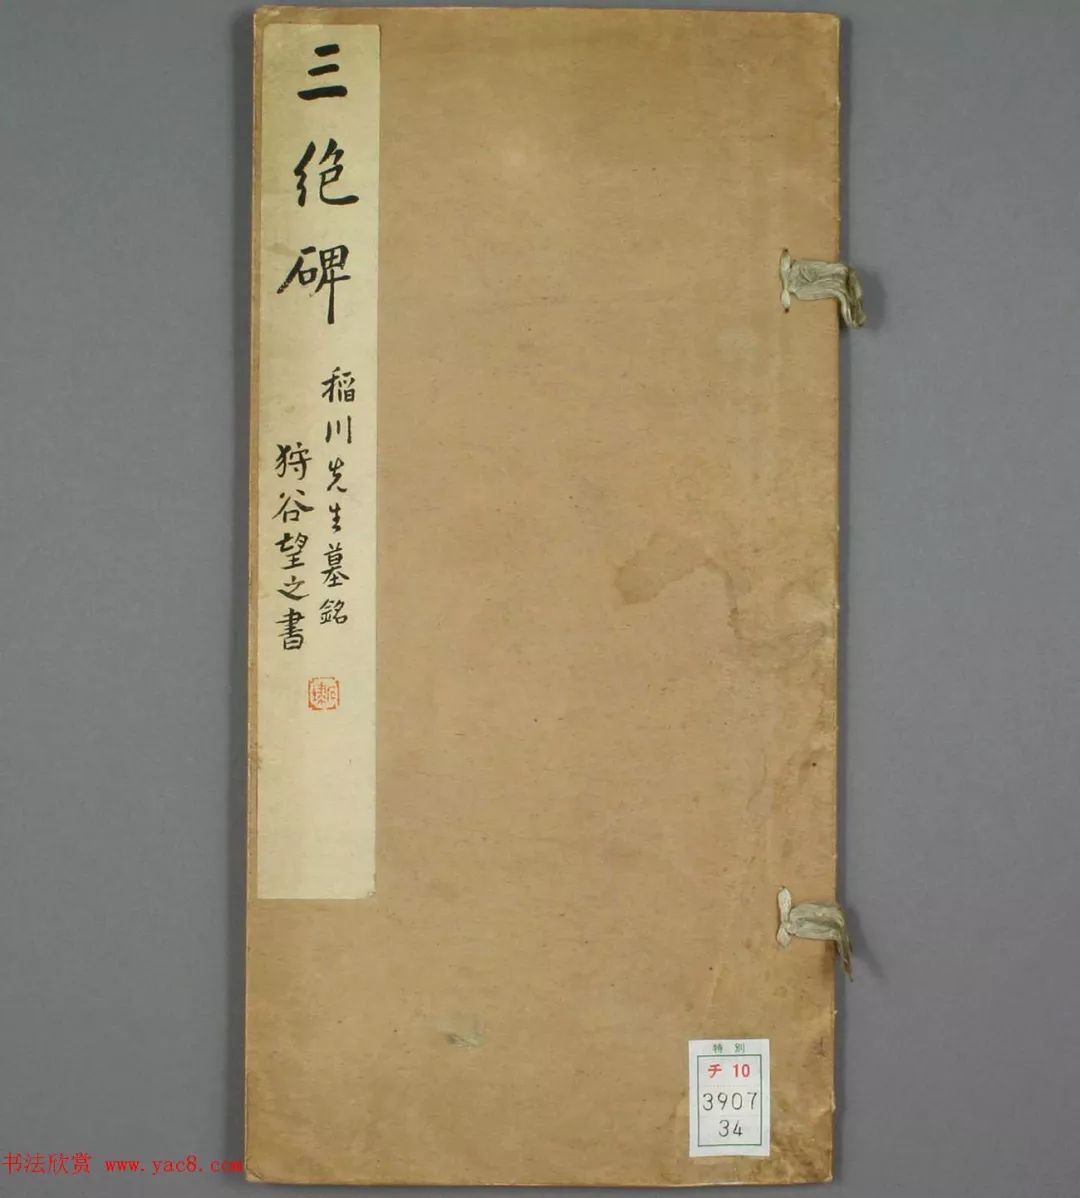 三绝碑
稲川先生墓銘
狩谷望之書
特別
チ 10
3907
34
书法欣赏 www.yac8.com